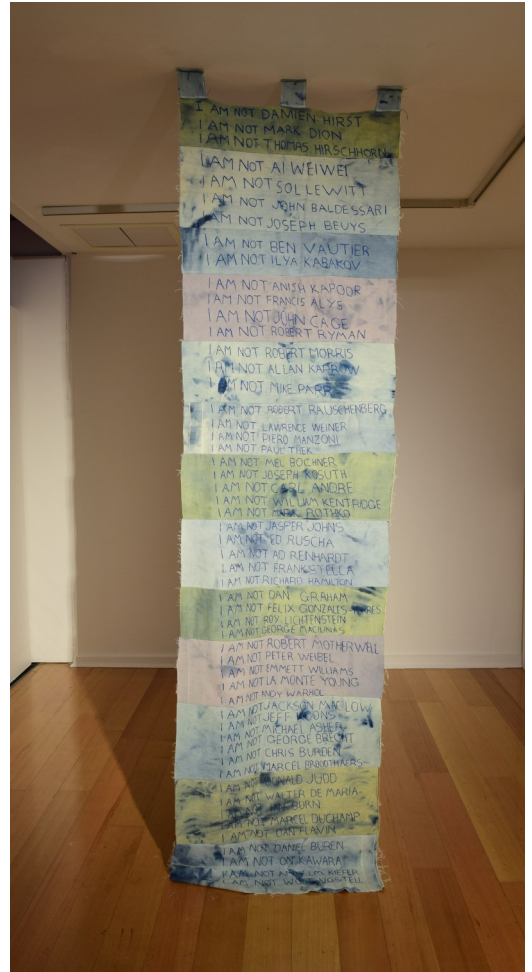 I AM NOT DAMIEN HIRST
I AM NOT MARK DION
I AM NOT THOMAS HIRSCHHORN
I AM NOT AI WEIWEI
I AM NOT SOL LEWITT
I AM NOT JOHN BALDESSARI
I AM NOT JOSEPH BEUYS
I AM NOT BEN VAUTIER
I AM NOT ILYA KABAKOV
I AM NOT ANISH KAPOOR
I AM NOT FRANCIS ALYS
I AM NOT JOHN CAGE
I AM NOT ROBERT RYMAN
I AM NOT ROBERT MORRIS
I AM NOT ALLAN KAPROW
I AM NOT MIKE PARR
I AM NOT ROBERT RAUSCHENBERG
I AM NOT LAWRENCE WEINER
I AM NOT PIERO MANZONI
I AM NOT PAUL THEK
I AM NOT MEL BOCHNER
I AM NOT JOSEPH KOSUTH
I AM NOT CARL ANDRE
I AM NOT WILLIAM KENTRIDGE
I AM NOT MARK ROTHKO
I AM NOT JASPER JOHNS
I AM NOT ED RUSCHA
I AM NOT AD REINHARDT
I AM NOT FRANK STELLA
I AM NOT RICHARD HAMILTON
I AM NOT DAN GRAHAM
I AM NOT FELIX GONZALES TORRES
I AM NOT ROY LICHTENSTEIN
I AM NOT GEORGE MACIUNAS
I AM NOT ROBERT MOTHERWELL
I AM NOT PETER WEIBEL
I AM NOT EMMETT WILLIAMS
I AM NOT LA MONTE YOUNG
I AM NOT ANDY WARHOL
I AM NOT JACKSON MAC LOW
I AM NOT JEFF KOONS
I AM NOT MICHAEL ASHER
I AM NOT GEORGE BRECHT
I AM NOT CHRIS BURDEN
I AM NOT MARCEL BROODTHAERS
I AM NOT DONALD JUDD
I AM NOT WALTER DE MARIA
I AM NOT BURN
I AM NOT MARCEL DUCHAMP
I AM NOT DAN FLAVIN
I AM NOT DANIEL BUREN
I AM NOT ON KAWARA
I AM NOT KIEFER
I AM NOT WOLF VOSTELL